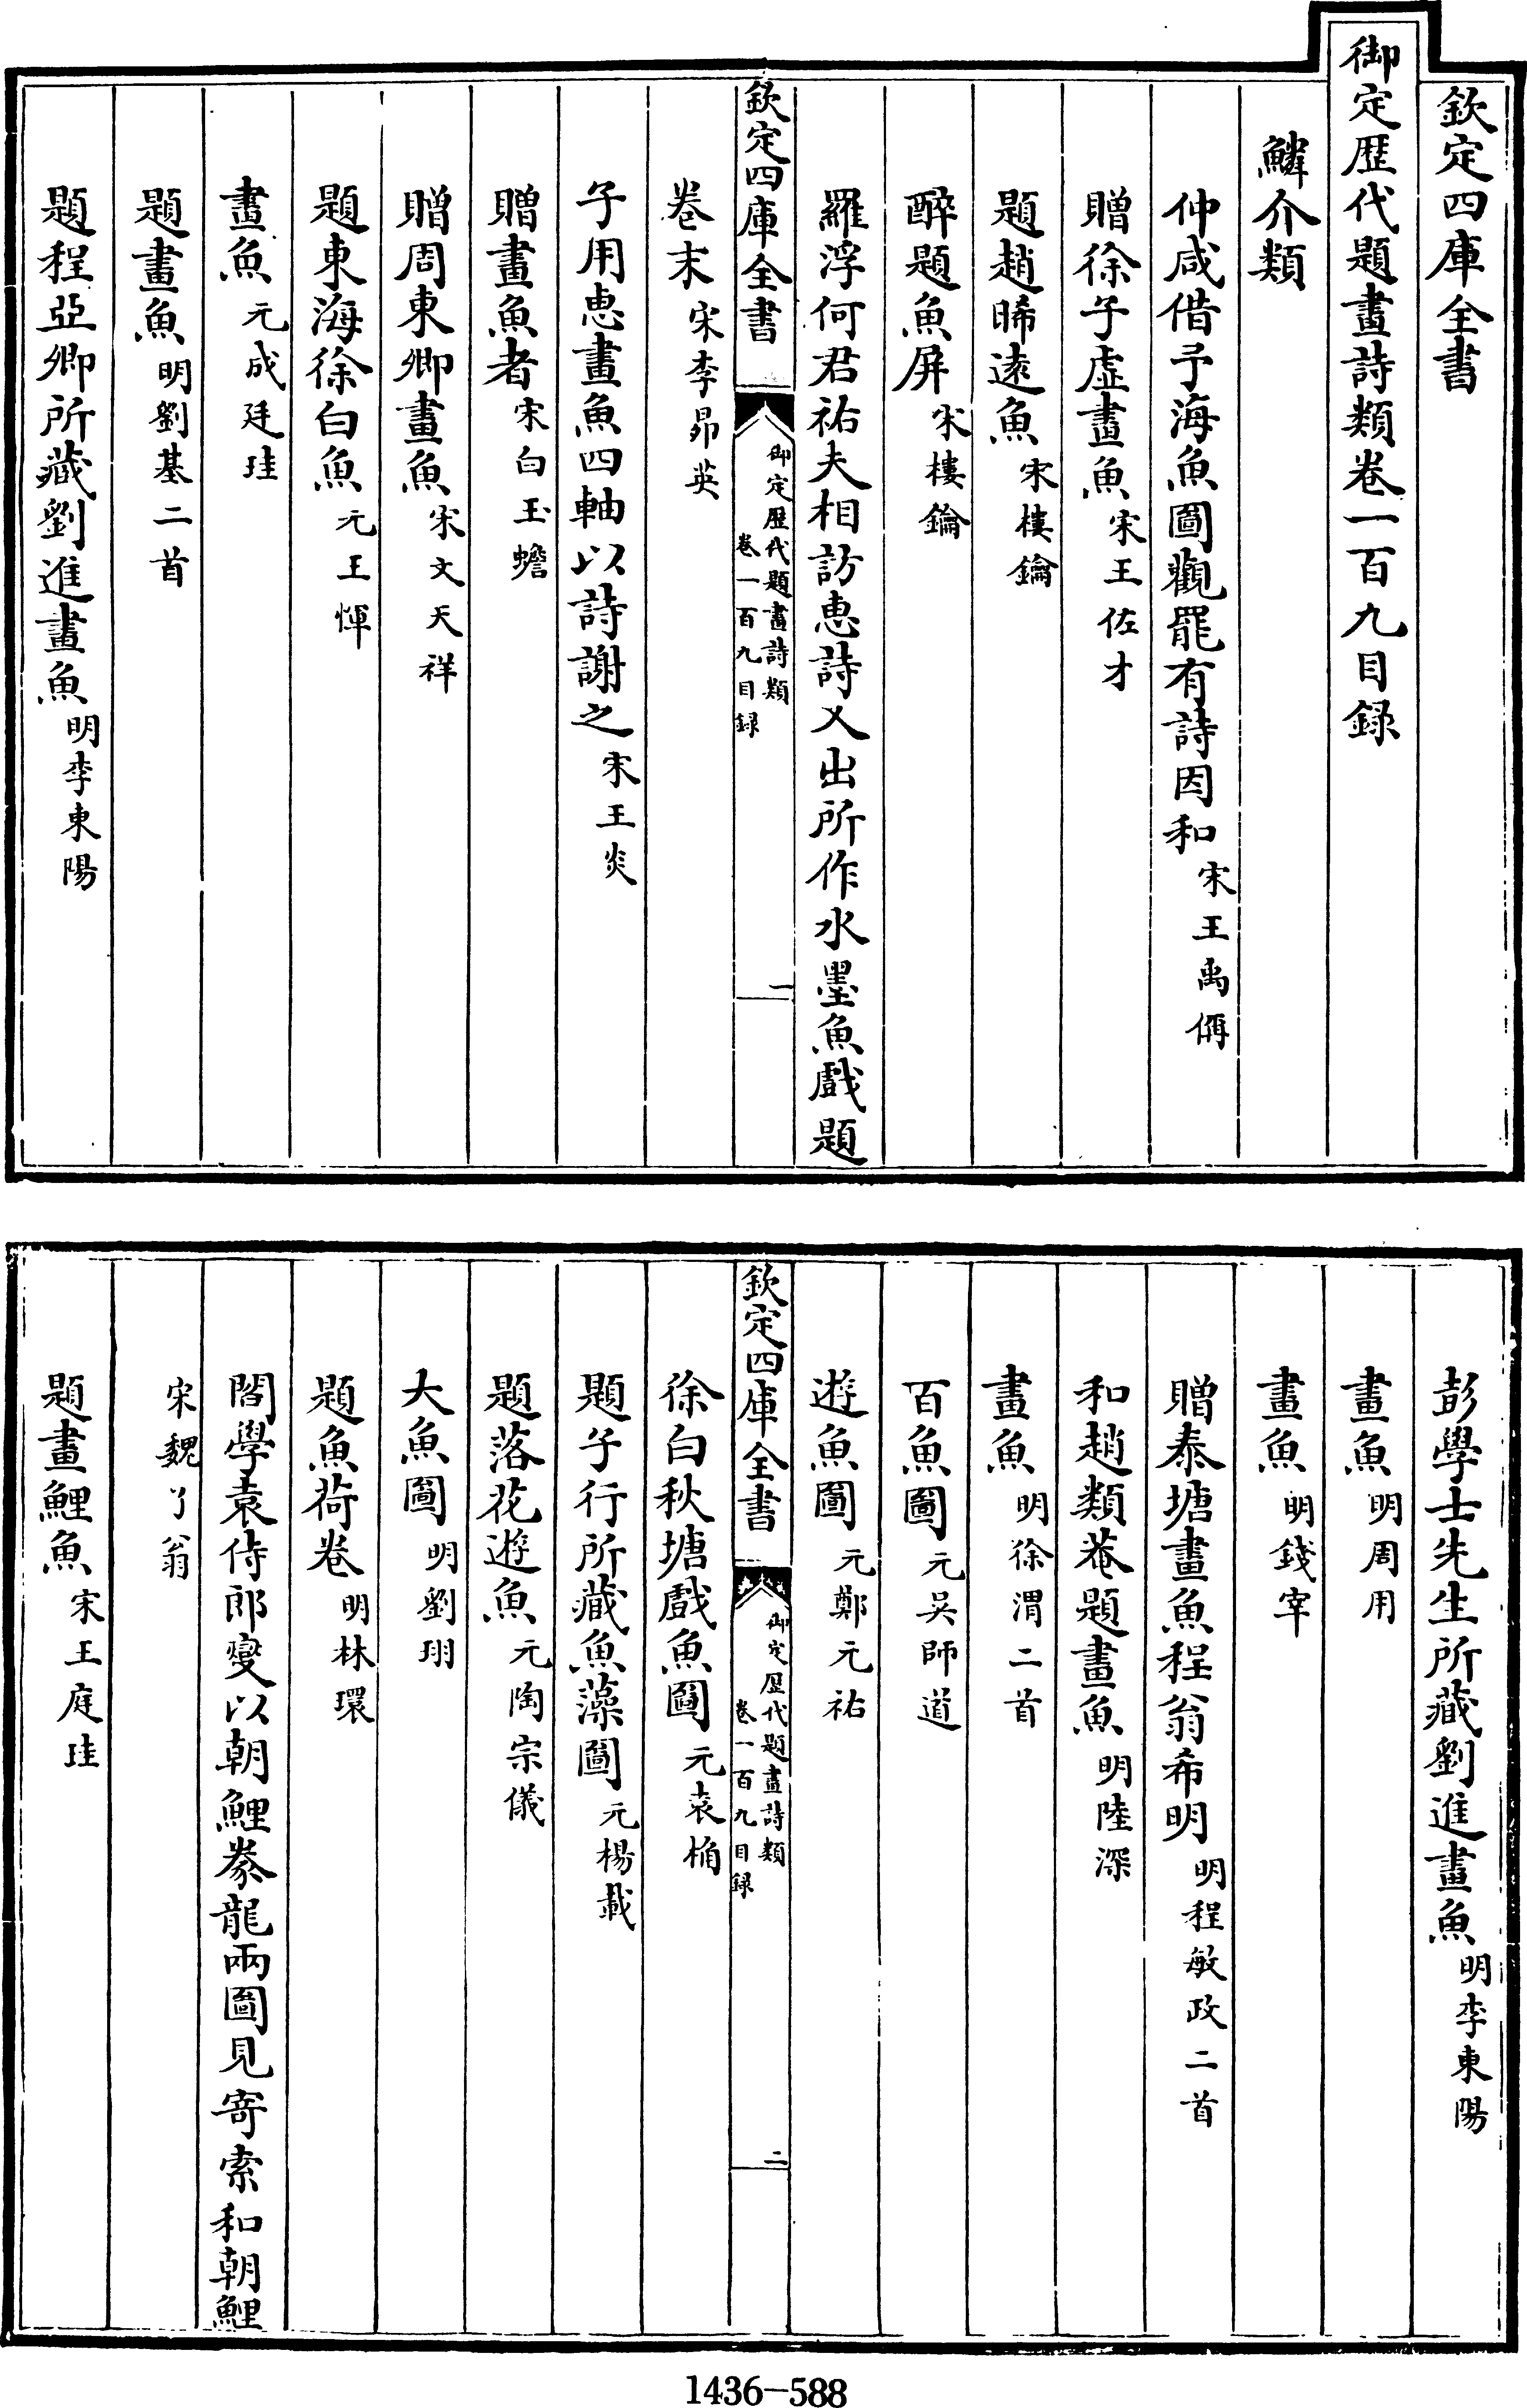 欽定四庫全書
御定歷代題畫詩類卷一百九目録
鱗介類
仲咸借予海魚圖觀罷有詩因和宋王禹偁
贈徐子虛畫魚宋王佐才
題趙晞遠魚宋樓鑰
醉題魚屏宋樓鑰
羅浮何君祐夫相訪惠詩又出所作水墨魚戲題
欽定四庫全書
御定歷代題畫詩類
卷一百九目録
一
卷末宋李昴英
子用惠畫魚四軸以詩謝之宋王炎
贈畫魚者宋白玉蟾
贈周東卿畫魚宋文天祥
題東海徐白魚元王惲
畫魚元成廷珪
題畫魚明劉基二首
題程亞卿所藏劉進畫魚明李東陽
彭學士先生所藏劉進畫魚明李東陽
畫魚明周用
畫魚明錢宰
贈泰塘畫魚程翁希明明程敏政二首
和趙類菴題畫魚明陸深
畫魚明徐渭二首
百魚圖元吳師道
遊魚圖元鄭元祐
欽定四庫全書
御定歷代題畫詩類
卷一百九目録
二
徐白秋塘戲魚圖元袁桷
題子行所藏魚藻圖元楊載
題落花遊魚元陶宗儀
大魚圖明劉珝
題魚荷卷明林環
閣學袁侍郎燮以朝鯉豢龍兩圖見寄索和朝鯉
宋魏了翁
題畫鯉魚宋王庭珪
1436-588